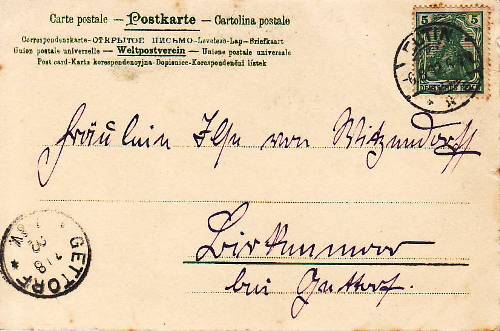 Carte postale — Postkarte — Cartolina postale
Correspondenzkarte - ОТКРЫТОЕ ПИСЬМО - Levelező-Lap - Briefkaart
Union postale universelle — Weltpostverein — Unione postale universale
Post card - Karta korespondencyjna - Dopisnice - Korespondenční lístek
5 5
DEUTSCHES REICH
EUTIN
Fräulein Ilse von Witzendorff
Birkenmoor
bei Gettorf.
GETTORF